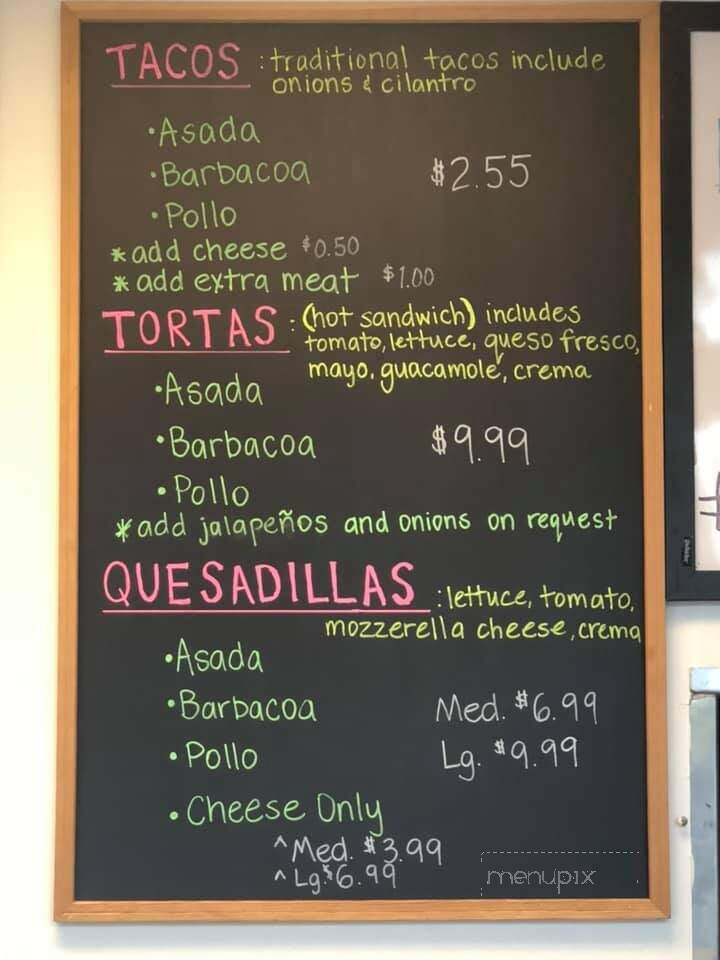 TACOS : traditional tacos include
onions & cilantro
• Asada
• Barbacoa $2.55
• Pollo
* add cheese $0.50
* add extra meat $1.00
TORTAS : (hot sandwich) includes
tomato, lettuce, queso fresco,
mayo, guacamole, crema
• Asada
• Barbacoa $9.99
• Pollo
* add jalapeños and onions on request
QUESADILLAS : lettuce, tomato,
mozzerella cheese, crema
• Asada
• Barbacoa Med. $6.99
• Pollo Lg. $9.99
• Cheese Only
^ Med. $3.99
^ Lg. $6.99
menupix